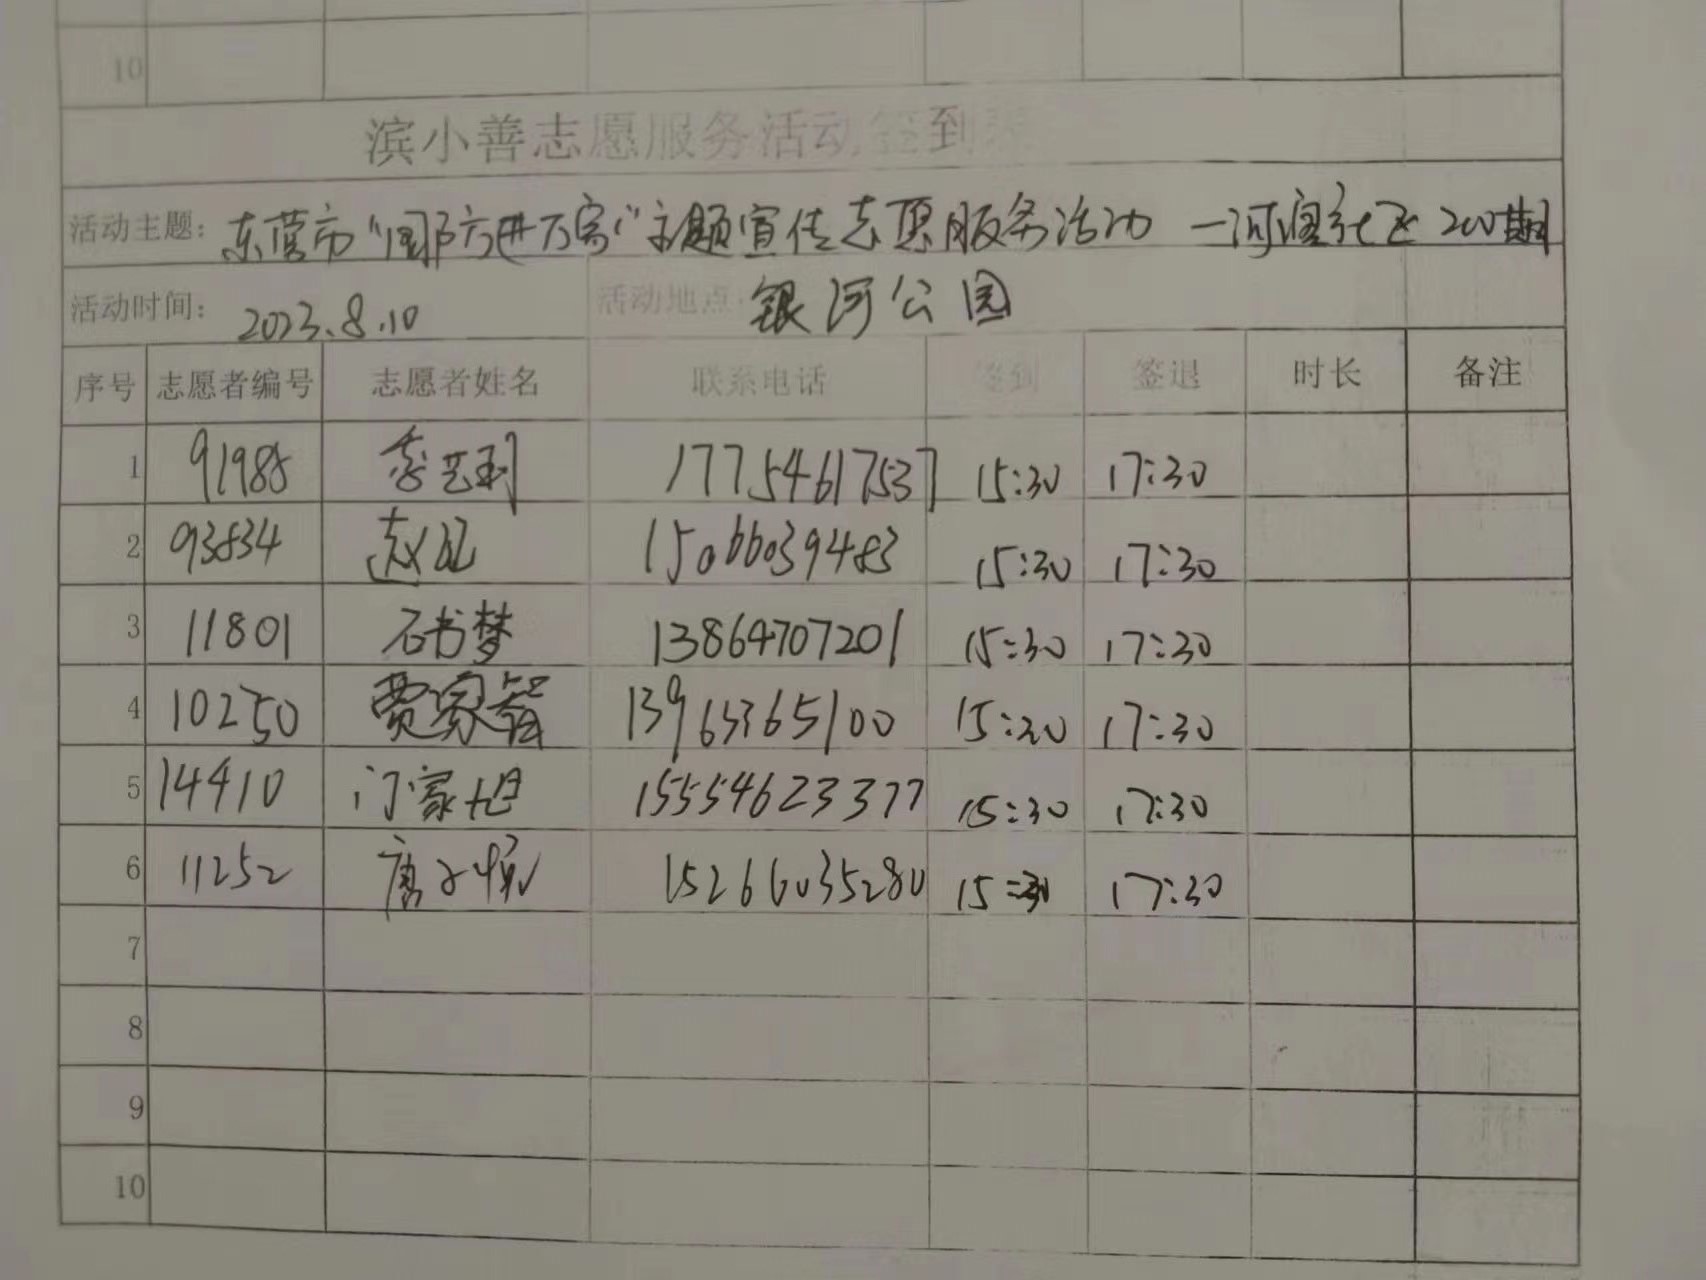 10
滨小善志愿服务活动签到表
活动主题：东营市“国防进万家”主题宣传志愿服务活动 一河滨社区200期
活动时间：2023.8.10 活动地点 银河公园
序号 志愿者编号 志愿者姓名 联系电话 签到 签退 时长 备注
1 91985 17754617537 15:30 17:30
2 93834 赵 15066039483 15:30 17:30
3 11801 石书梦 13864707201 15:30 17:30
4 10250 贾家智 13963365100 15:30 17:30
5 14410 门家旭 15554623377 15:30 17:30
6 11252 唐子惊 15266035280 15:30 17:30
7
8
9
10